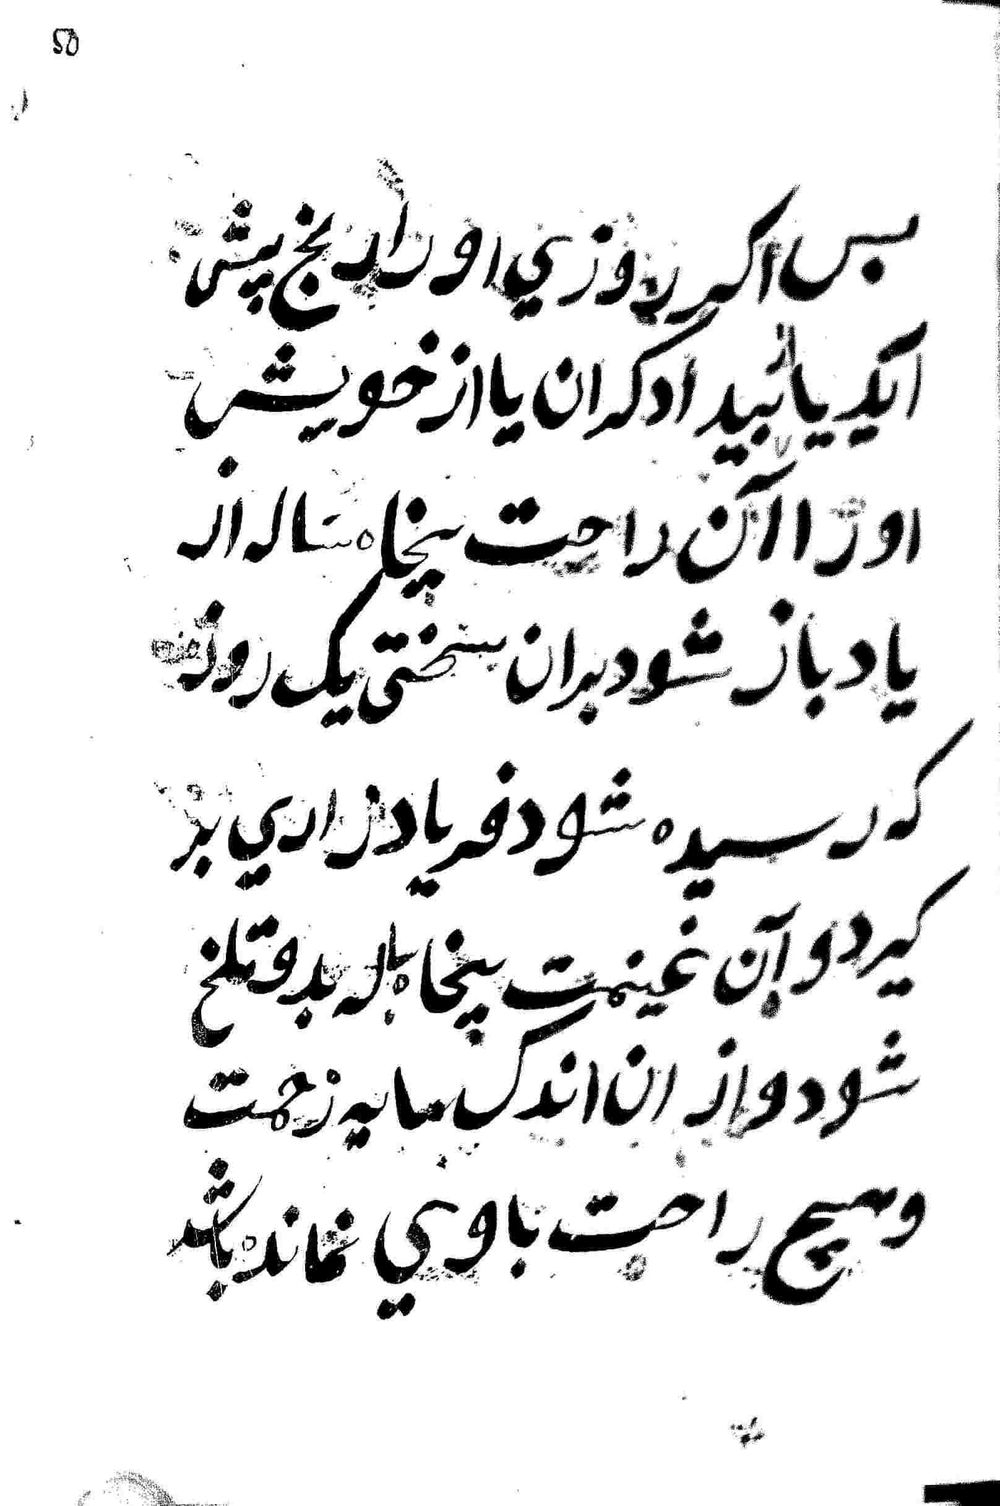 ٥٥
بس اکر روزي او را رنج پیش
آید یا بیدادکران یا از خویش
او را آن راحت پنجاه ساله از
یاد باز شود بدان سختی یک روز
که رسیده شود فریاد زاري بر
کیرد و آن غنیمت پنجاه ساله بدو تلخ
شود و از ان اندک مایه زحمت
وهیچ راحت باوي نمانده باشد